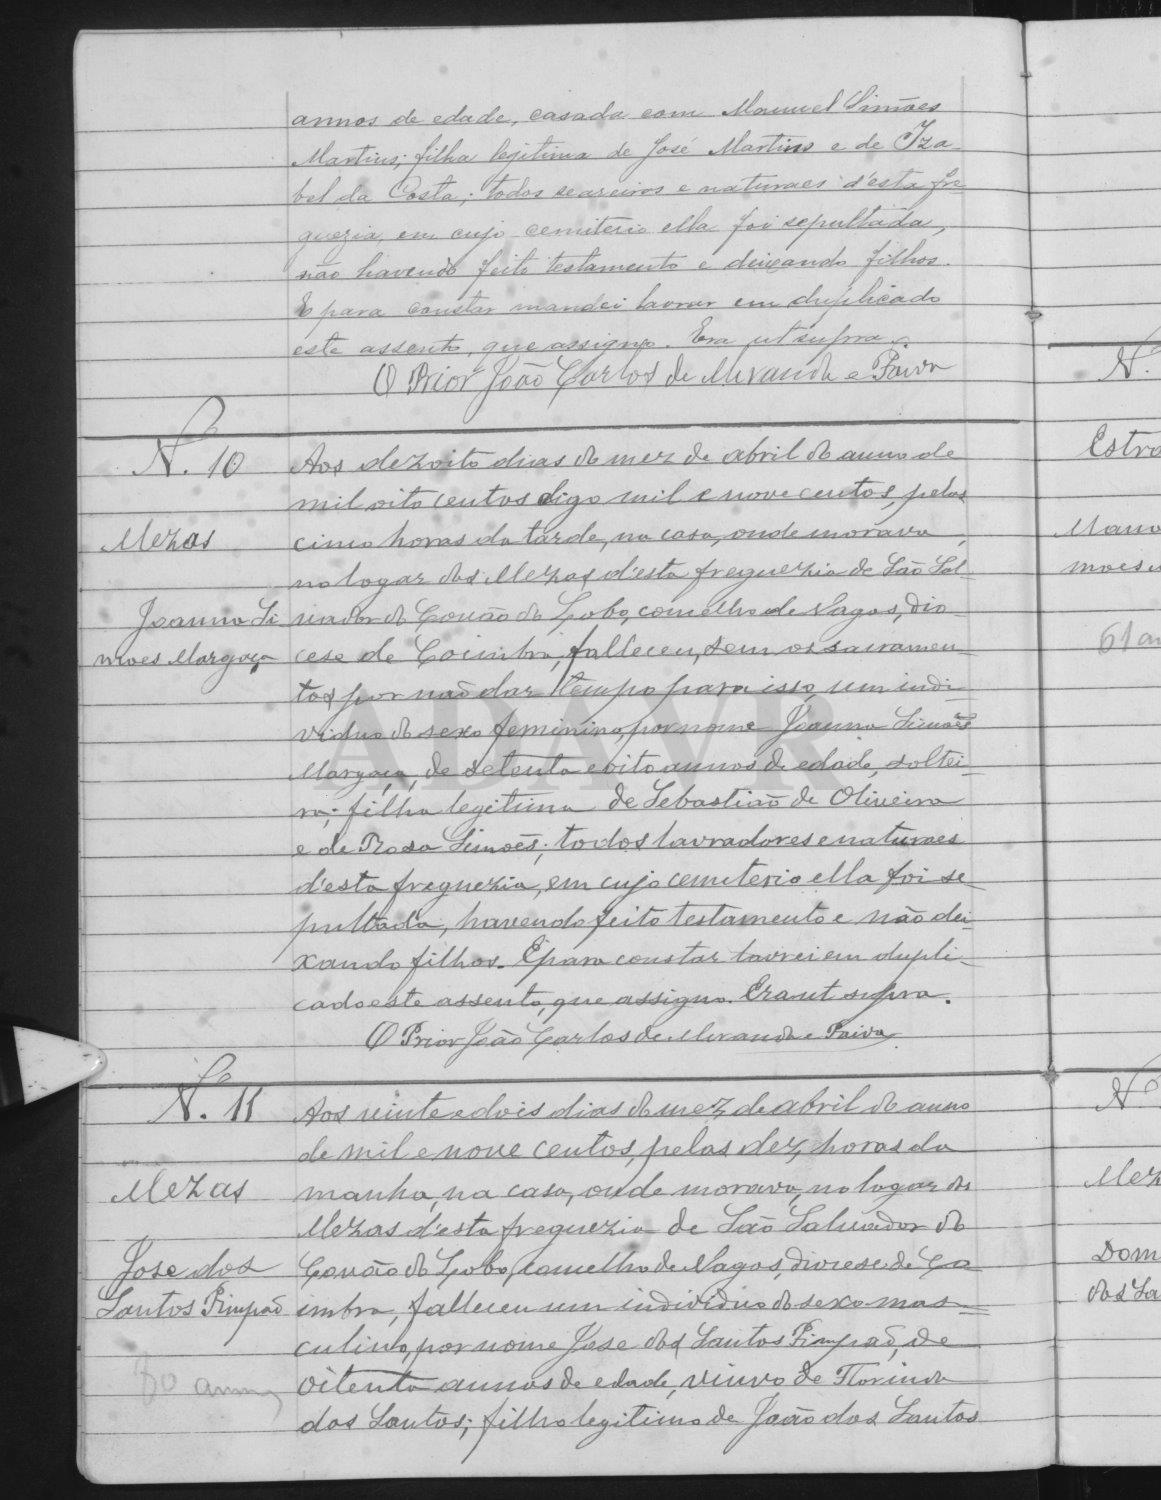 annos de edade, casada com Manuel Simões
Martins; filha legitima de José Martins e de Iza-
bel da Costa; todos seareiros e naturaes d'esta fre-
guezia, em cujo cemiterio ella foi sepultada,
não havendo feito testamento e deixando filhos.
E para constar mandei lavrar em duplicado
este assento, que assigno. Era ut supra.
O Prior João Carlos de Miranda e Paiva
N.º 10
Mezas
Joanna Si-
mões Margaça
Aos dezoito dias do mez de abril do anno de
mil oito centos digo mil e nove centos, pelas
cinco horas da tarde, na casa, onde morava,
no logar das Mezas d'esta freguezia de São Sal-
vador do Covão do Lobo, concelho de Vagos, dio-
cese de Coimbra, falleceu, sem os sacramen-
tos por não dar tempo para isso, um indi-
viduo do sexo feminino, por nome Joanna Simões
Margaça, de setenta e oito annos de edade, soltei-
ra; filha legitima de Sebastião de Oliveira
e de Rosa Simões; todos lavradores e naturaes
d'esta freguezia, em cujo cemiterio ella foi se-
pultada, havendo feito testamento e não dei-
xando filhos. E para constar lavrei em dupli-
cado este assento, que assigno. Era ut supra.
O Prior João Carlos de Miranda e Paiva
N.º 11
Mezas
Jose dos
Santos Pimpaõ
80 annos
Aos vinte e dois dias do mez de abril do anno
de mil e nove centos, pelas dez horas da
manha, na casa, onde morava, no logar das
Mezas d'esta freguezia de São Salvador do
Covão do Lobo, concelho de Vagos, diocese de Co-
imbra, falleceu um individuo do sexo mas-
culino, por nome Jose dos Santos Pimpaõ, de
oitenta annos de edade, viuvo de Florinda
dos Santos; filho legitimo de João dos Santos
ADAVR
N.
Estra
Mano
mões
61 an
N.º
Mez
Dom
dos Sa